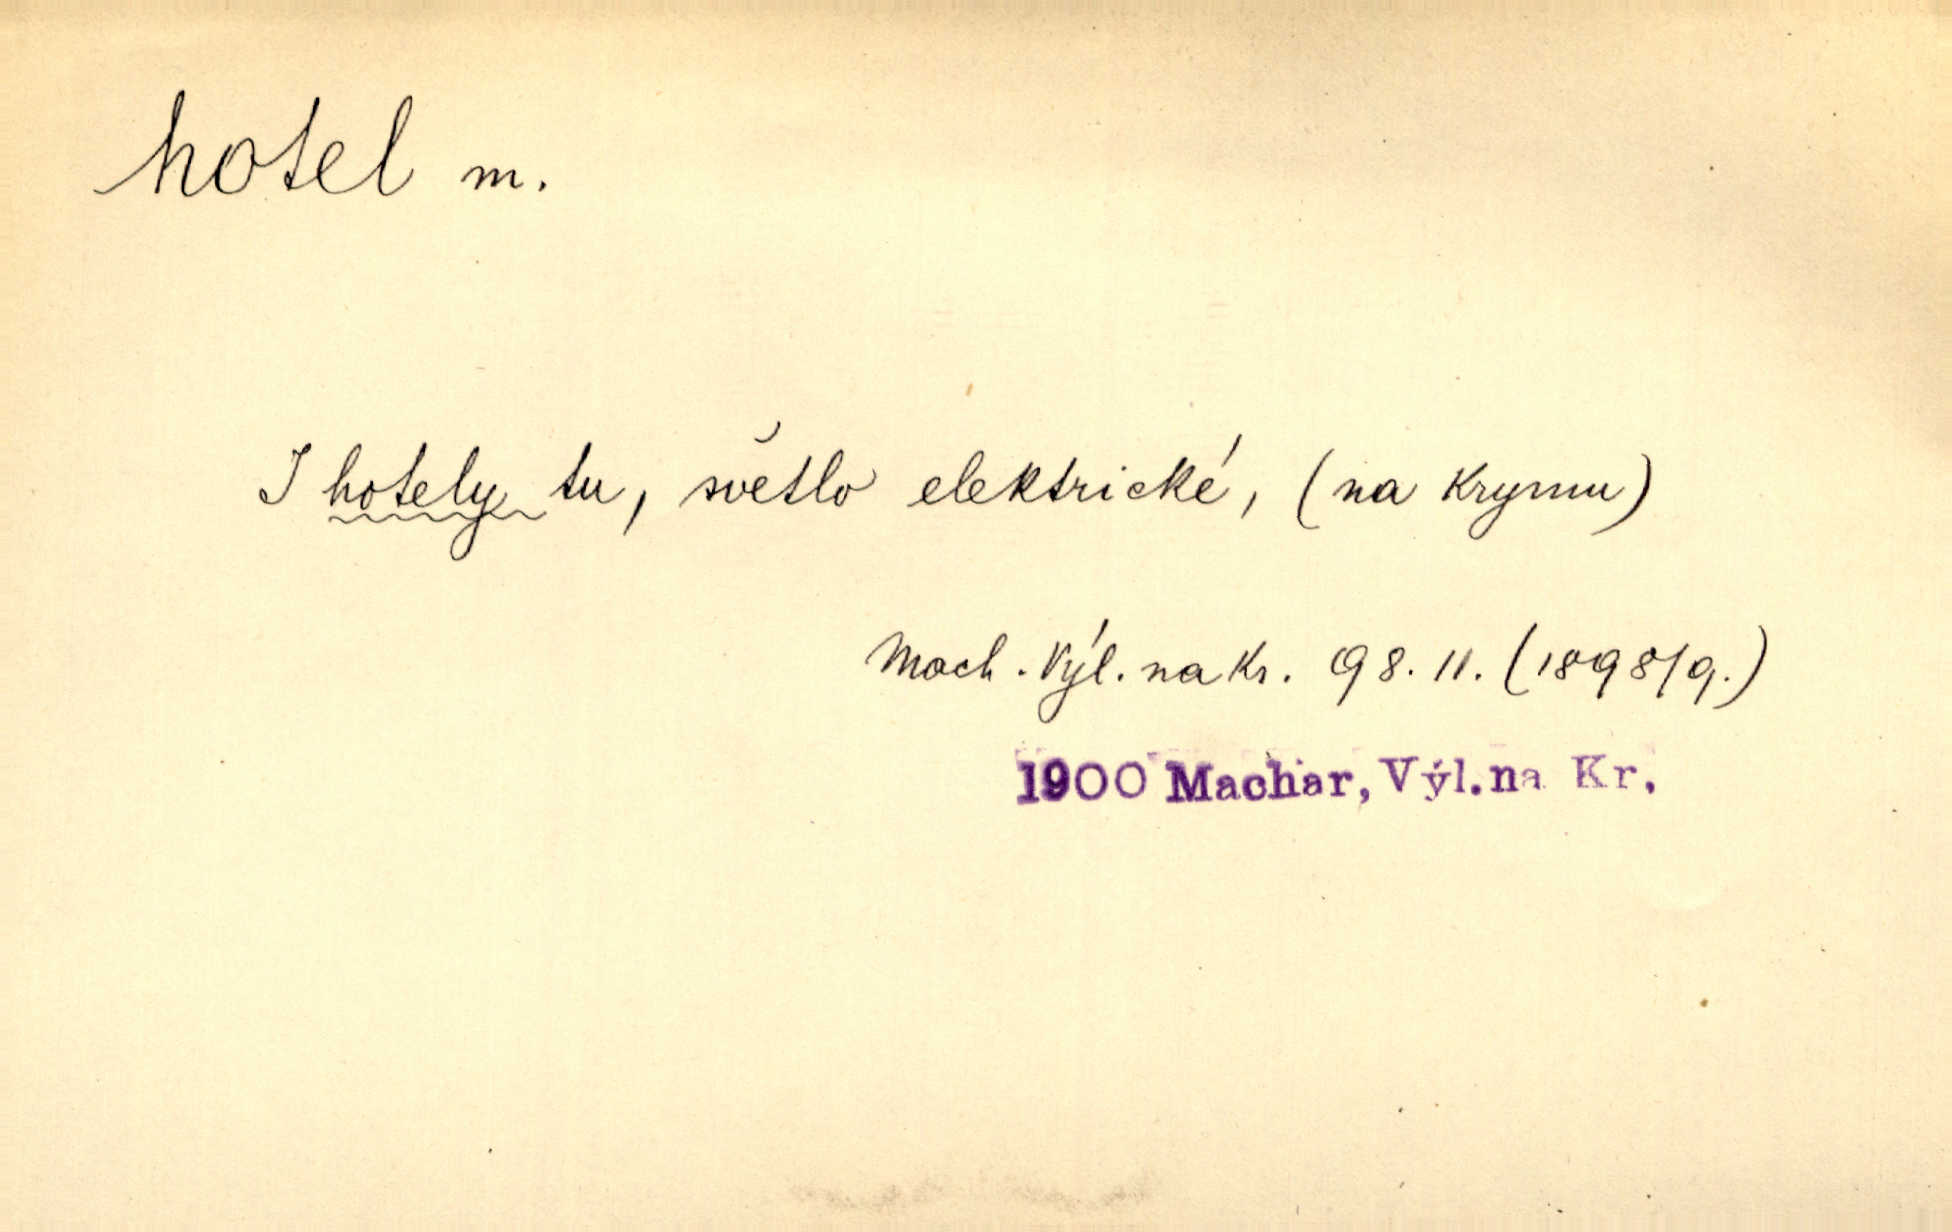 hotel m.
I hotely tu, světlo elektrické, (na Krymu)
Mach. Výl. na Kr. 98. 11. (1898/9.)
1900 Machar, Výl. na Kr.